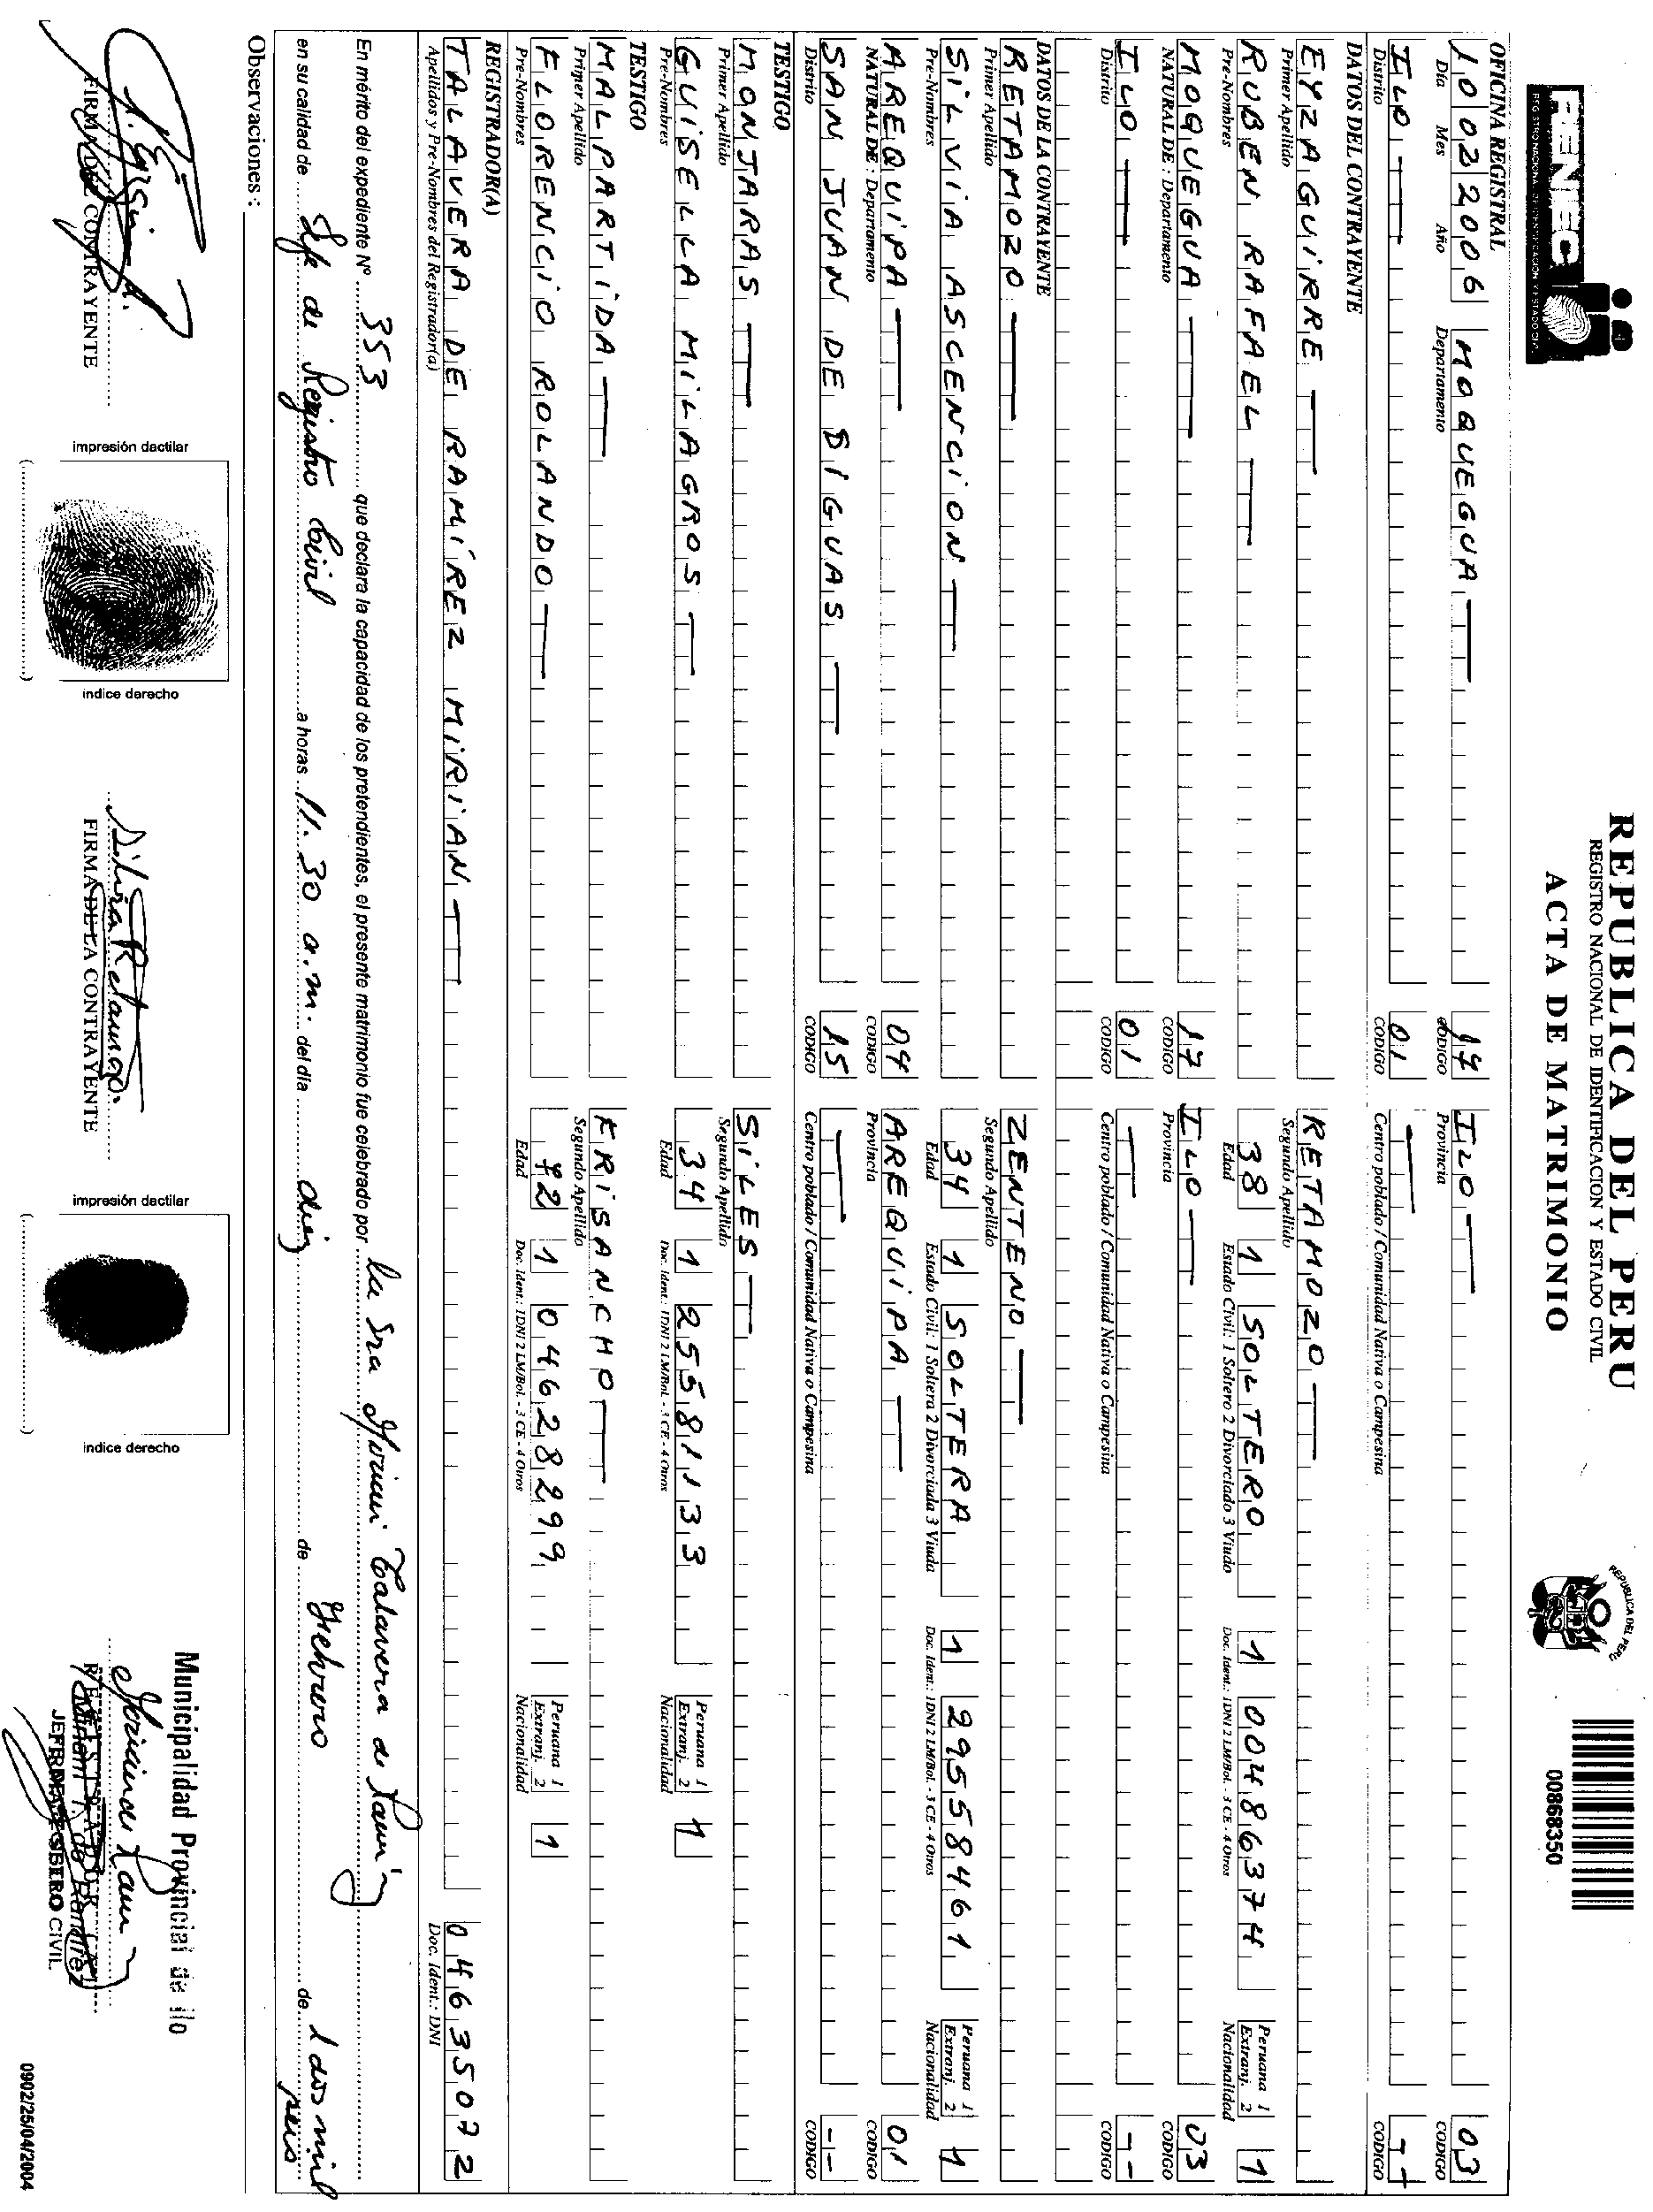 RENIEC
REGISTRO NACIONAL DE IDENTIFICACION Y ESTADO CIVIL
REPUBLICA DEL PERU
REGISTRO NACIONAL DE IDENTIFICACION Y ESTADO CIVIL
ACTA DE MATRIMONIO
REPUBLICA DEL PERU
00868350
OFICINA REGISTRAL
10 02 2006 MOQUEGUA 17 ILO 03
Día Mes Año Departamento CODIGO Provincia CODIGO
ILO 01 --
Distrito CODIGO Centro poblado / Comunidad Nativa o Campesina CODIGO
DATOS DEL CONTRAYENTE
EYZAGUIRRE RETAMOZO
Primer Apellido Segundo Apellido
RUBEN RAFAEL 38 1 SOLTERO 1 00486374 Peruana 1 Extranj. 2 1
Pre-Nombres Edad Estado Civil: 1 Soltero 2 Divorciado 3 Viudo Doc. Ident.: 1DNI 2 LM/Bol. - 3 CE - 4 Otros Nacionalidad
MOQUEGUA 17 ILO 03
NATURAL DE : Departamento CODIGO Provincia CODIGO
ILO 01 --
Distrito CODIGO Centro poblado / Comunidad Nativa o Campesina CODIGO
DATOS DE LA CONTRAYENTE
RETAMOZO ZENTENO
Primer Apellido Segundo Apellido
SILVIA ASCENCION 34 1 SOLTERA 1 29558461 Peruana 1 Extranj. 2 1
Pre-Nombres Edad Estado Civil: 1 Soltera 2 Divorciada 3 Viuda Doc. Ident.: 1DNI 2 LM/Bol. - 3 CE - 4 Otros Nacionalidad
AREQUIPA 04 AREQUIPA 01
NATURAL DE : Departamento CODIGO Provincia CODIGO
SAN JUAN DE DIGUAS 15 --
Distrito CODIGO Centro poblado / Comunidad Nativa o Campesina CODIGO
TESTIGO
MONJARAS SILES
Primer Apellido Segundo Apellido
GUISELLA MILAGROS 34 1 25581133 Peruana 1 Extranj. 2 1
Pre-Nombres Edad Doc. Ident.: 1DNI 2 LM/Bol. - 3 CE - 4 Otros Nacionalidad
TESTIGO
MALPARTIDA KRISANCHO
Primer Apellido Segundo Apellido
FLORENCIO ROLANDO 72 1 04628299 Peruana 1 Extranj. 2 1
Pre-Nombres Edad Doc. Ident.: 1DNI 2 LM/Bol. - 3 CE - 4 Otros Nacionalidad
REGISTRADOR(A)
TALAVERA DE RAMÍREZ MIRIAN 04635072
Apellidos y Pre-Nombres del Registrador(a) Doc. Ident.: DNI
En mérito del expediente Nº 353 que declara la capacidad de los pretendientes, el presente matrimonio fue celebrado por la Sra Talavera de
en su calidad de Jefe de Registro Civil a horas 11.30 a.m. del día diez de Febrero de dos mil seis
Observaciones :
FIRMA DEL CONTRAYENTE
impresión dactilar
índice derecho
Silvia Retamozo
FIRMA DE LA CONTRAYENTE
impresión dactilar
índice derecho
Municipalidad Provincial de Ilo
JEFE DE REGISTRO CIVIL
0902/25/04/2004